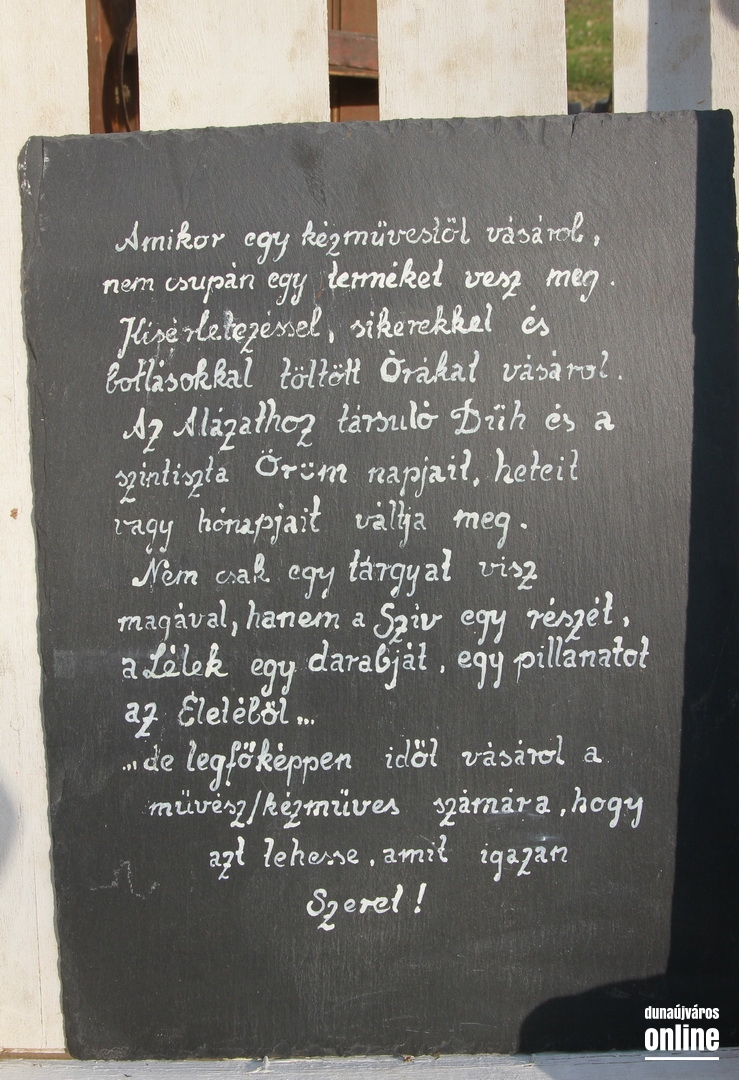 Amikor egy kézművestől vásárol,
nem csupán egy terméket vesz meg.
Kisérletezéssel, sikerekkel és
botlásokkal töltött Órákat vásárol.
Az Alázathoz társuló Düh és a
szintiszta Öröm napjait, heteit
vagy hónapjait váltja meg.
Nem csak egy tárgyat visz
magával, hanem a Szív egy részét,
a Lélek egy darabját, egy pillanatot
az Életéből...
...de legfőképpen időt vásárol a
művész/kézműves számára, hogy
azt tehesse, amit igazán
Szeret!
dunaújváros
online